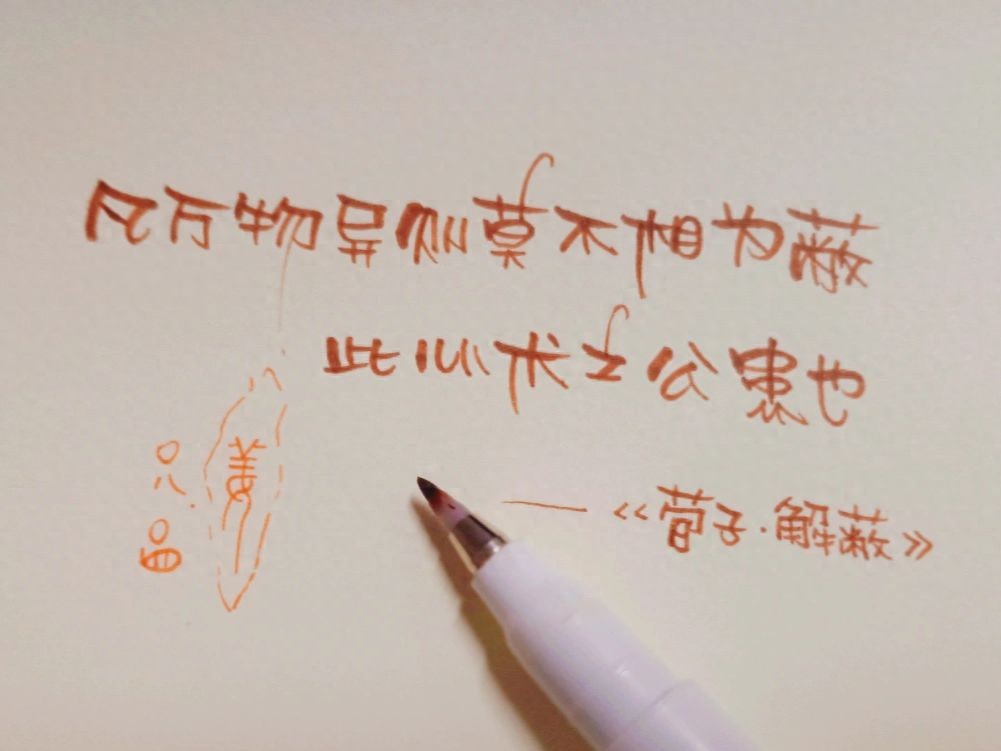 凡万物异则莫不相为蔽
此心术之公患也
——《荀子·解蔽》
姜